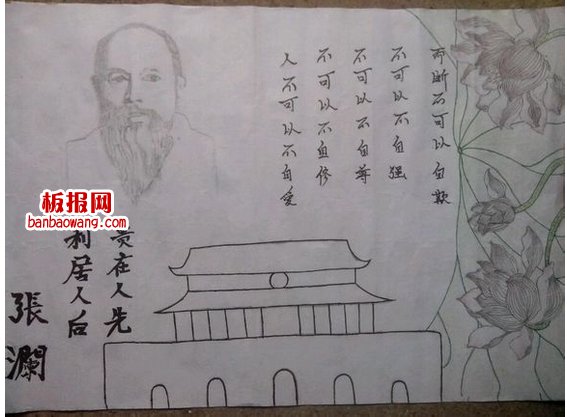 人不可以不自爱
不可以不自修
不可以不自尊
不可以不自强
而断不可以自欺
板报网
banbaowang.com
责在人先
利居人后
張瀾